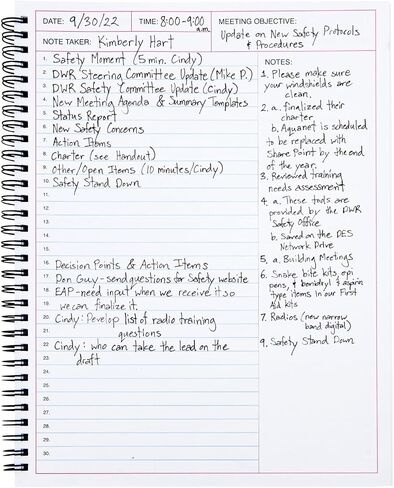 DATE: 9/30/22 TIME: 8:00-9:00 a.m. MEETING OBJECTIVE:
Update on New Safety Protocols
& Procedures
NOTE TAKER: Kimberly Hart
1. Safety Moment (5 min. Cindy)
2. DWR Steering Committee Update (Mike P.)
3. DWR Safety Committee Update (Cindy)
4. New Meeting Agenda & Summary Templates
5. Status Report
6. New Safety Concerns
7. Action Items
8. Charter (see Handout)
9. Other/Open Items (10 minutes/Cindy)
10. Safety Stand Down
11.
12.
13.
14.
15.
16. Decision Points & Action Items
17. Don Guy-send questions for Safety website
18. EAP-need input when we receive it so
19. we can finalize it.
20. Cindy: Develop list of radio training
21. questions
22. Cindy: who can take the lead on the
23. draft
24.
25.
26.
27.
28.
29.
30.
NOTES:
1. Please make sure
your windshields are
clean.
2. a. finalized their
charter
b. Aquanet is scheduled
to be replaced with
Share Point by the end
of the year.
3. Reviewed training
needs assessment
4. a. These tools are
provided by the DWR
Safety Office
b. Saved on the DES
Network Drive
5. a. Building Meetings
6. Snake bite kits, epi
pens, & benadryl & aspirin
type items in our First
Aid kits
7. Radios (new narrow
band digital)
9. Safety Stand Down